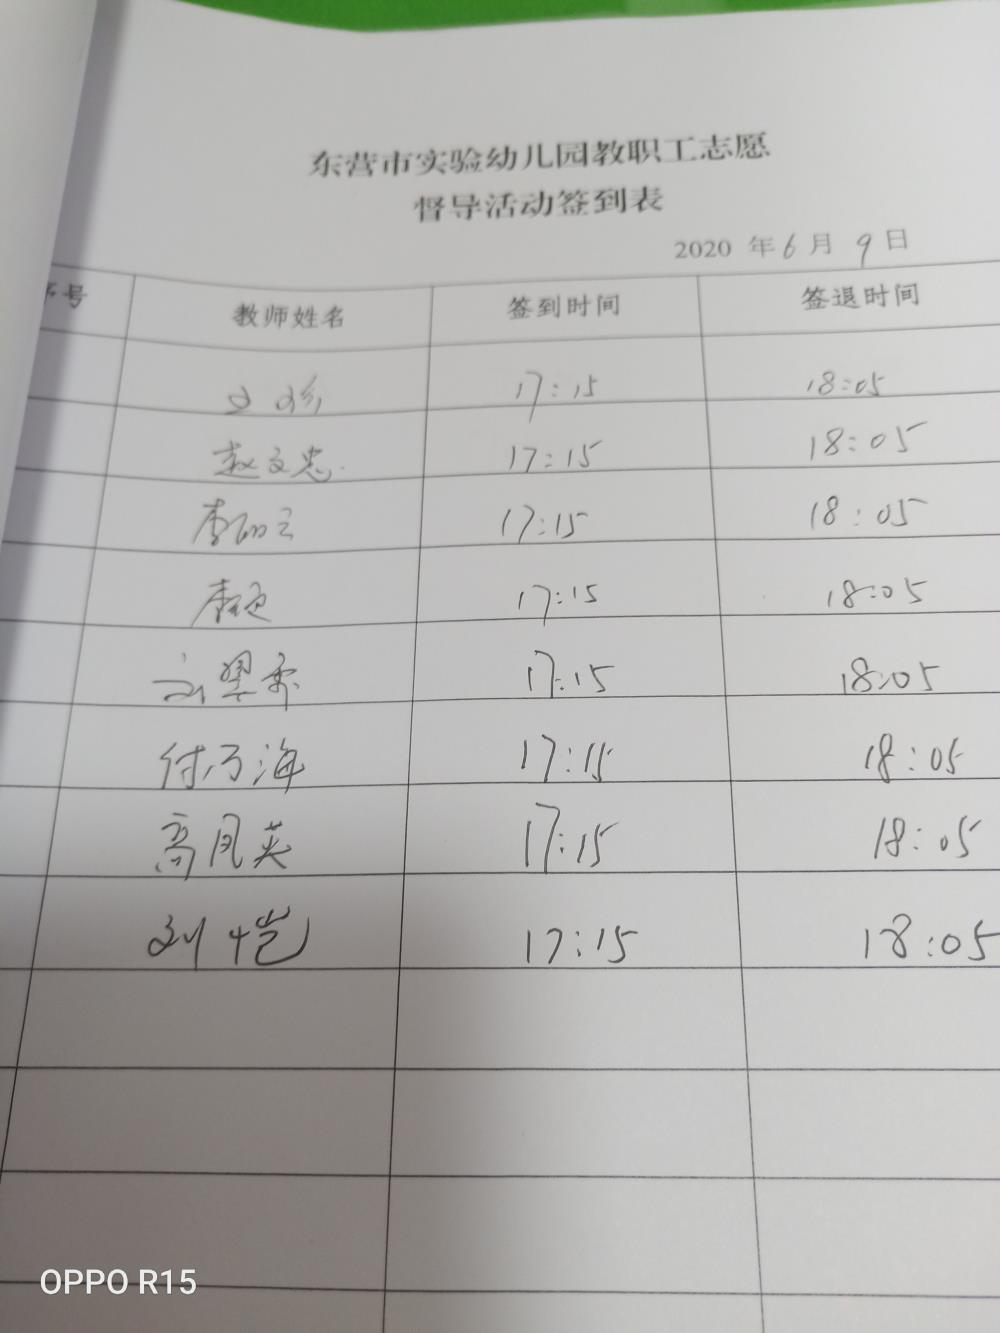 东营市实验幼儿园教职工志愿
督导活动签到表
2020 年6月 9日
序号 教师姓名 签到时间 签退时间
17:15 18:05
赵文忠 17:15 18:05
17:15 18:05
17:15 18:05
17:15 18:05
付乃海 17:15 18:05
高凤英 17:15 18:05
刘恺 17:15 18:05
OPPO R15